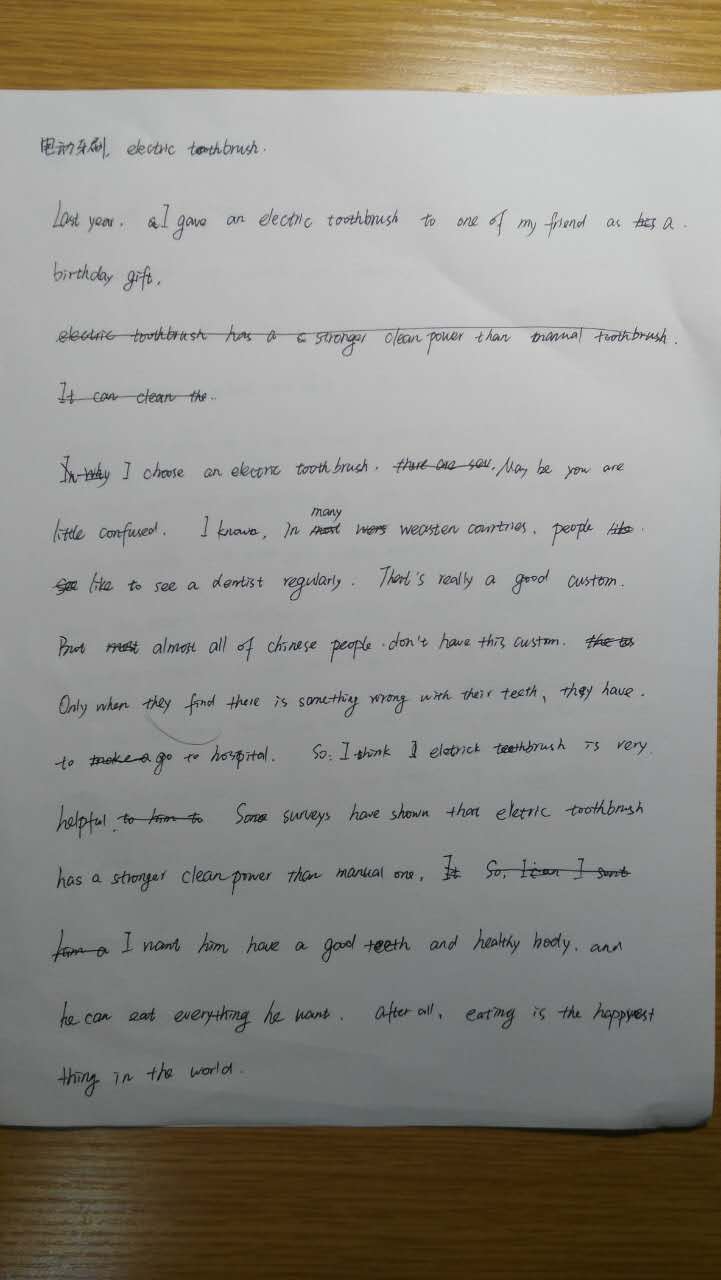 电动牙刷, electric toothbrush.
Last year. I gave an electric toothbrush to one of my friend as a
birthday gift.
electric toothbrush has a stronger clean power than manual toothbrush.
It can clean the..
I choose an electric toothbrush. May be you are
little confused. I know, In many weasten countries, people
like to see a dentist regularly. That's really a good custom.
But almost all of chinese people don't have this custom.
Only when they find there is something wrong with their teeth, they have
to go to hospital. So, I think eletrick toothbrush is very
helpful. Some surveys have shown that eletric toothbrush
has a stronger clean power than manual one.
I want him have a good teeth and healthy body, and
he can eat everything he want. After all, eating is the happyest
thing in the world.